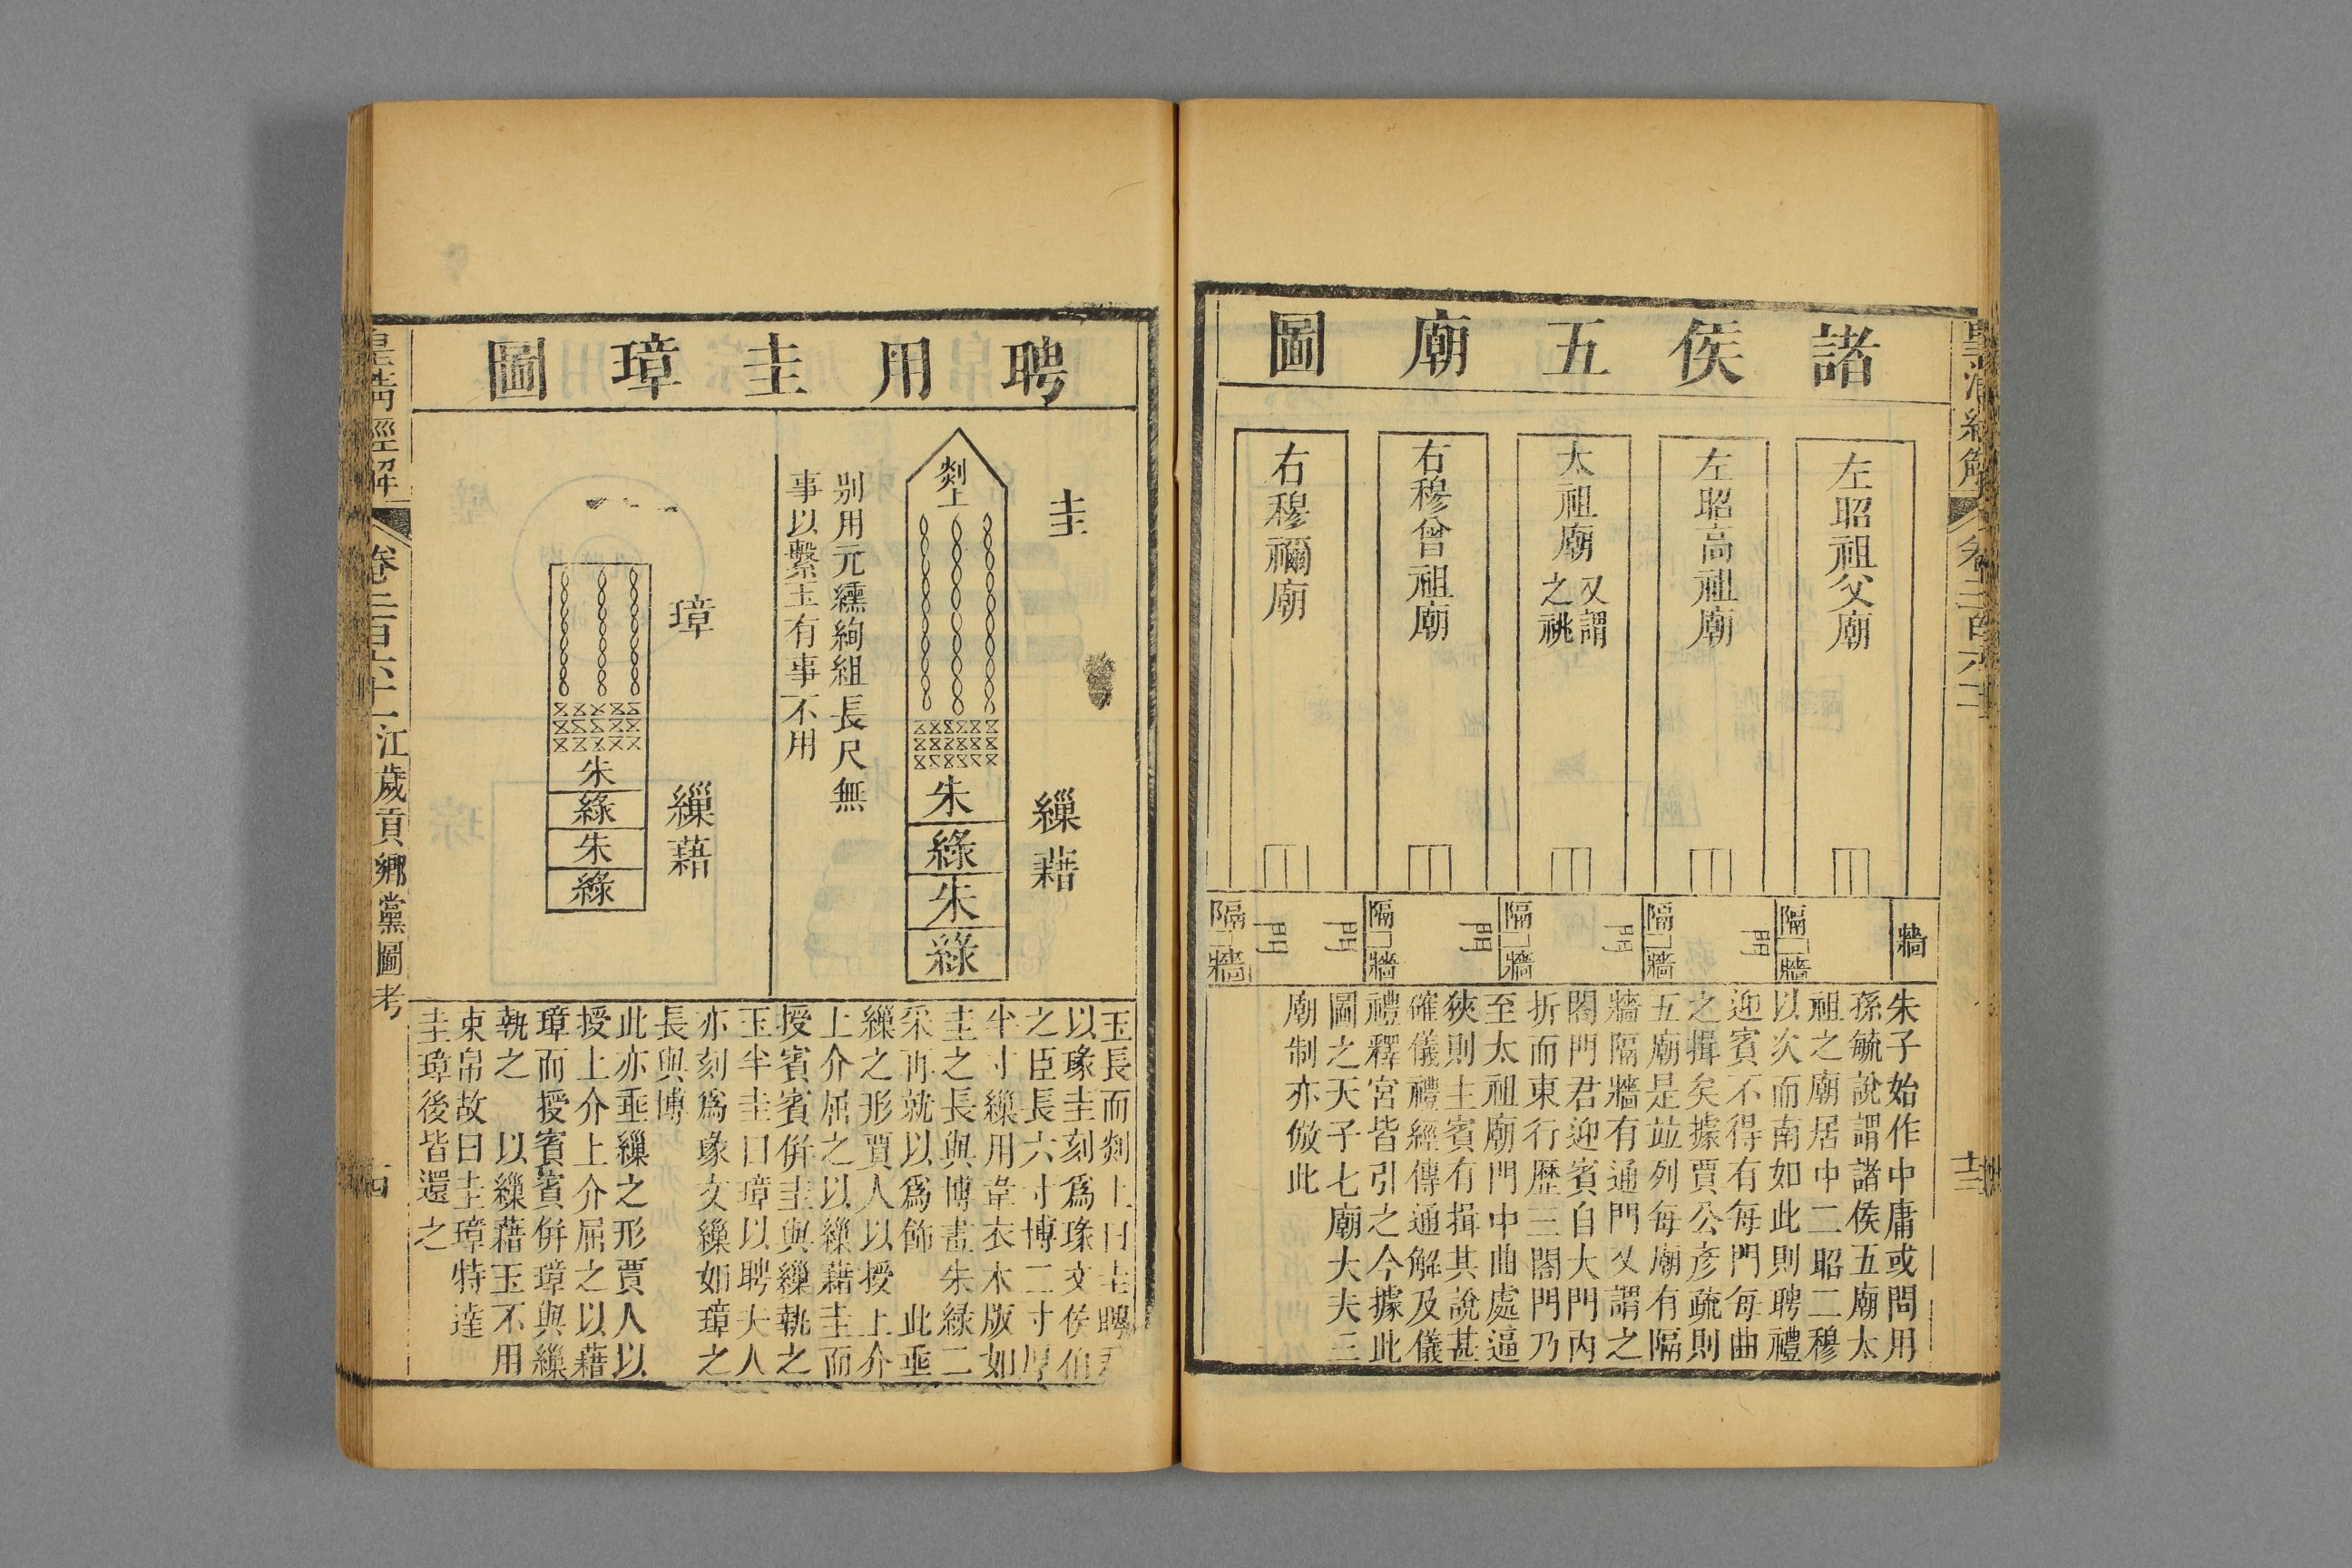 諸侯五廟圖
左昭祖父廟
左昭高祖廟
太祖廟
又謂
之祧
右穆曾祖廟
右穆禰廟
牆
隔牆
門
隔牆
門
隔牆
門
隔牆
門
門
隔牆
朱子始作中庸或問用
孫毓說謂諸侯五廟太
祖之廟居中二昭二穆
以次而南如此則聘禮
迎賓不得有每門每曲
之揖矣據賈公彥疏則
五廟是竝列每廟有隔
牆隔牆有通門又謂之
閤門君迎賓自大門內
折而東行歷三閤門乃
至太祖廟門中曲處逼
狹則主賓有揖其說甚
確儀禮經傳通解及儀
禮釋宮皆引之今據此
圖之天子七廟大夫三
廟制亦倣此
皇清經解
卷二百六十一
十三
聘用圭璋圖
圭
剡上
朱
綠
朱
綠
繅藉
別用元纁絢組長尺無
事以繫玉有事不用
璋
朱
綠
朱
綠
繅藉
玉長而剡上曰圭聘君
以瑑圭刻爲瑑文侯伯
之臣長六寸博二寸厚
半寸繅用韋衣木版如
圭之長與博畫朱綠二
采再就以爲飾 此垂
繅之形賈人以授上介
上介屈之以繅藉圭而
授賓賓併圭與繅執之
玉半圭曰璋以聘夫人
亦刻爲瑑文繅如璋之
長與博
此亦垂繅之形賈人以
授上介上介屈之以藉
璋而授賓賓併璋與繅
執之 以繅藉玉不用
束帛故曰圭璋特達
圭璋後皆還之
皇清經解
卷二百六十一江歲貢鄉黨圖考
十四